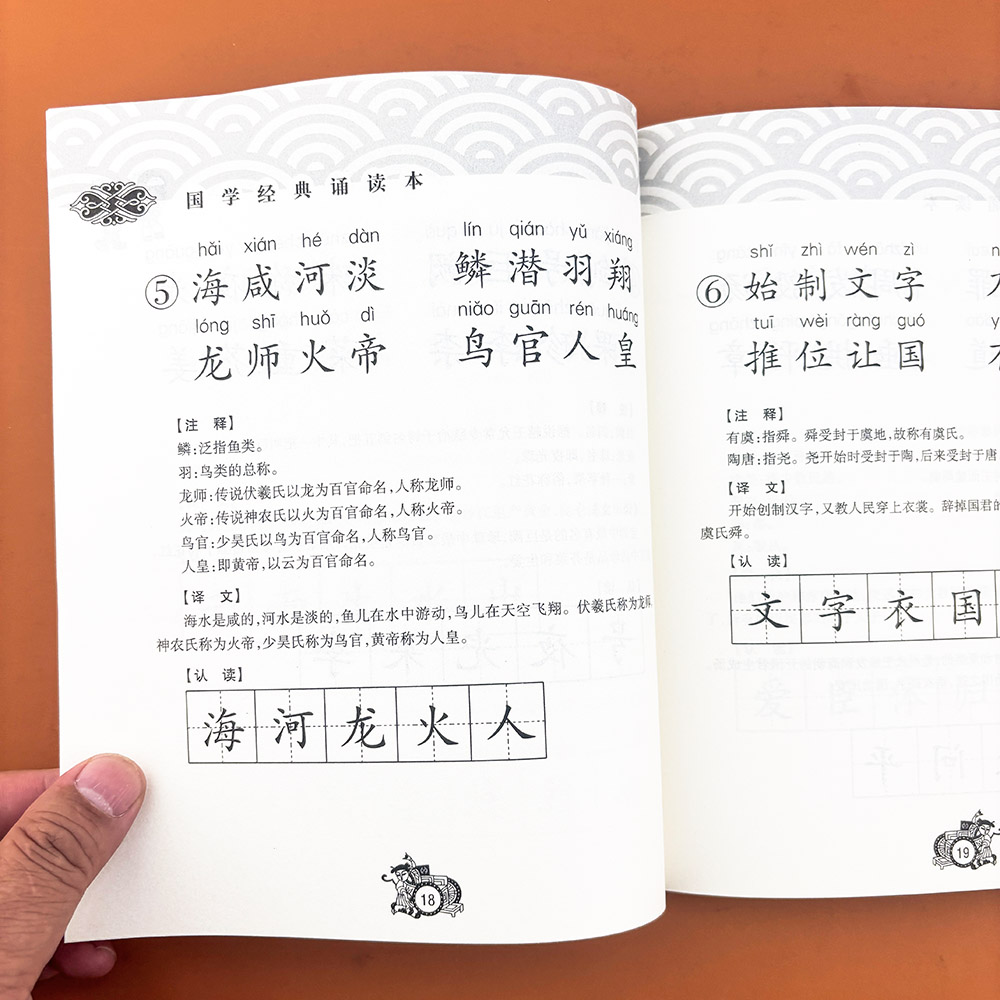 国学经典诵读本
hǎi xián hé dàn lín qián yǔ xiáng
⑤ 海咸河淡 鳞潜羽翔
lóng shī huǒ dì niǎo guān rén huáng
龙师火帝 鸟官人皇
【注 释】
鳞:泛指鱼类。
羽:鸟类的总称。
龙师:传说伏羲氏以龙为百官命名,人称龙师。
火帝:传说神农氏以火为百官命名,人称火帝。
鸟官:少昊氏以鸟为百官命名,人称鸟官。
人皇:即黄帝,以云为百官命名。
【译 文】
海水是咸的,河水是淡的,鱼儿在水中游动,鸟儿在天空飞翔。伏羲氏称为龙师,
神农氏称为火帝,少昊氏称为鸟官,黄帝称为人皇。
【认 读】
海 河 龙 火 人
18
shǐ zhì wén zì
⑥ 始制文字
tuī wèi ràng guó
推位让国
【注 释】
有虞:指舜。舜受封于虞地,故称有虞氏。
陶唐:指尧。尧开始时受封于陶,后来受封于唐
【译 文】
开始创制汉字,又教人民穿上衣裳。辞掉国君的
虞氏舜。
【认 读】
文 字 衣 国
19